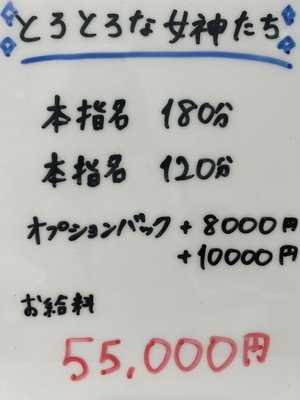 とろとろな女神たち
本指名 180分
本指名 120分
オプションバック +8000円
+10000円
お給料
55,000円